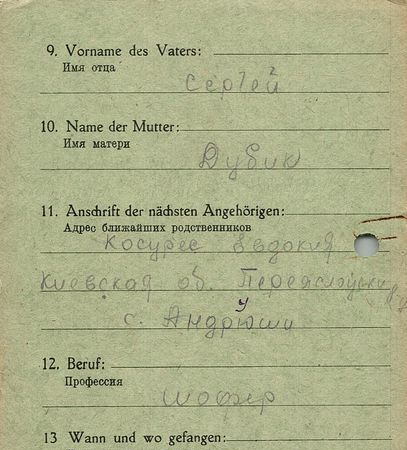 9. Vorname des Vaters:
Имя отца
Сергей
10. Name der Mutter:
Имя матери
Дубик
11. Anschrift der nächsten Angehörigen:
Адрес ближайших родственников
Евдокия
Киевская об.
с. Андруши
12. Beruf:
Профессия
шофер
13 Wann und wo gefangen: